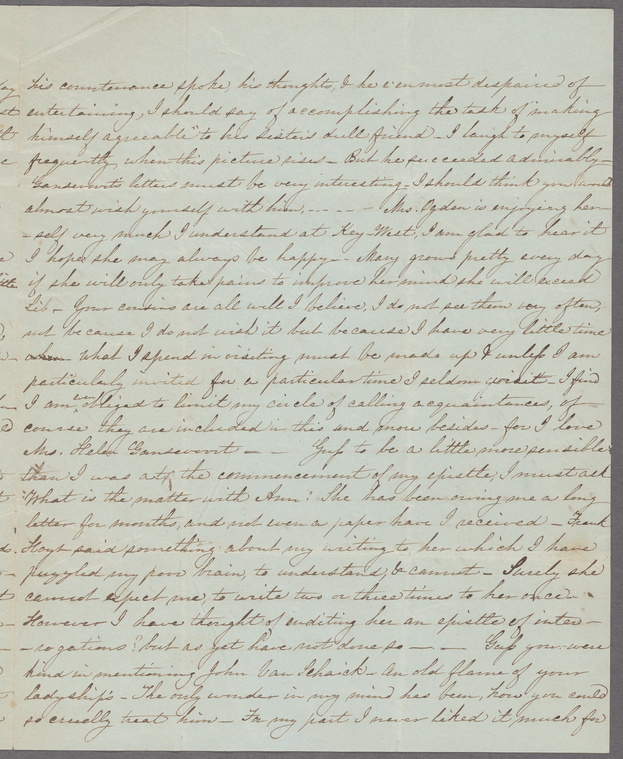 his countenance spoke, his thoughts, & he e'enmost despaired of
entertaining, I should say of accomplishing the task of "making
himself agreeable" to his sister's dull friend - I laugh to myself
frequently when this picture rises - But he succeeded admirably -
Gansevoort's letters must be very interesting - I should think you would
almost wish yourself with him, - - - - - Mrs. Ogden is enjoying her-
-self very much I understand at Key West, I am glad to hear it
I hope she may always be happy - Mary grows pretty every day
if she will only take pains to improve her mind she will exceed
Lib - Your cousins are all well I believe, I do not see them very often,
not because I do not wish it but because I have very little time
what I spend in visiting must be made up & unless I am
particularly invited for a particular time I seldom go - I find
I am obliged to limit my circle of calling acquaintances, of
course they are included in this and more besides - for I love
Mrs. Helen Gansevoort - - Gus to be a little more sensible
than I was at the commencement of my epistle, I must ask
What is the matter with Ann? She has been owing me a long
letter for months, and not even a paper have I received - Frank
Hoyt said something about my writing to her which I have
puzzled my poor brain, to understand, & cannot - Surely she
cannot expect me, to write two or three times to her once -
However I have thought of enditing her an epistle of inter-
-rogations? but as yet have not done so - - Gus you were
kind in mentioning John Van Schaick - An old flame of your
ladyship's - The only wonder in my mind has been, how you could
so cruelly treat him - For my part I never liked it much for